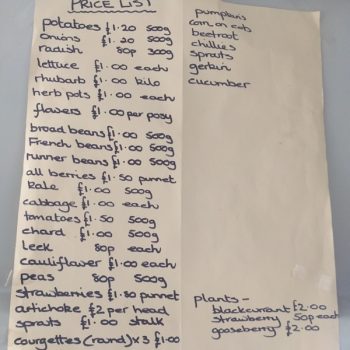 PRICE LIST
potatoes £1.20 500g
onions £1.20 500g
radish 80p 300g
lettuce £1.00 each
rhubarb £1.00 kilo
herb pots £1.00 each
flowers £1.00 per posy
broad beans £1.00 500g
French beans £1.00 500g
runner beans £1.00 500g
all berries £1.50 punnet
kale £1.00 500g
cabbage £1.00 each
tomatoes £1.50 500g
chard £1.00 500g
leek 80p each
cauliflower £1.00 each
peas 80p 500g
strawberries £1.50 punnet
artichoke £2 per head
sprats £1.00 stalk
courgettes (round) x3 £1.00
pumpkins
corn on cob
beetroot
chillies
sprouts
gerkin
cucumber
plants -
blackcurrant £2.00
strawberry 50p each
gooseberry £2.00